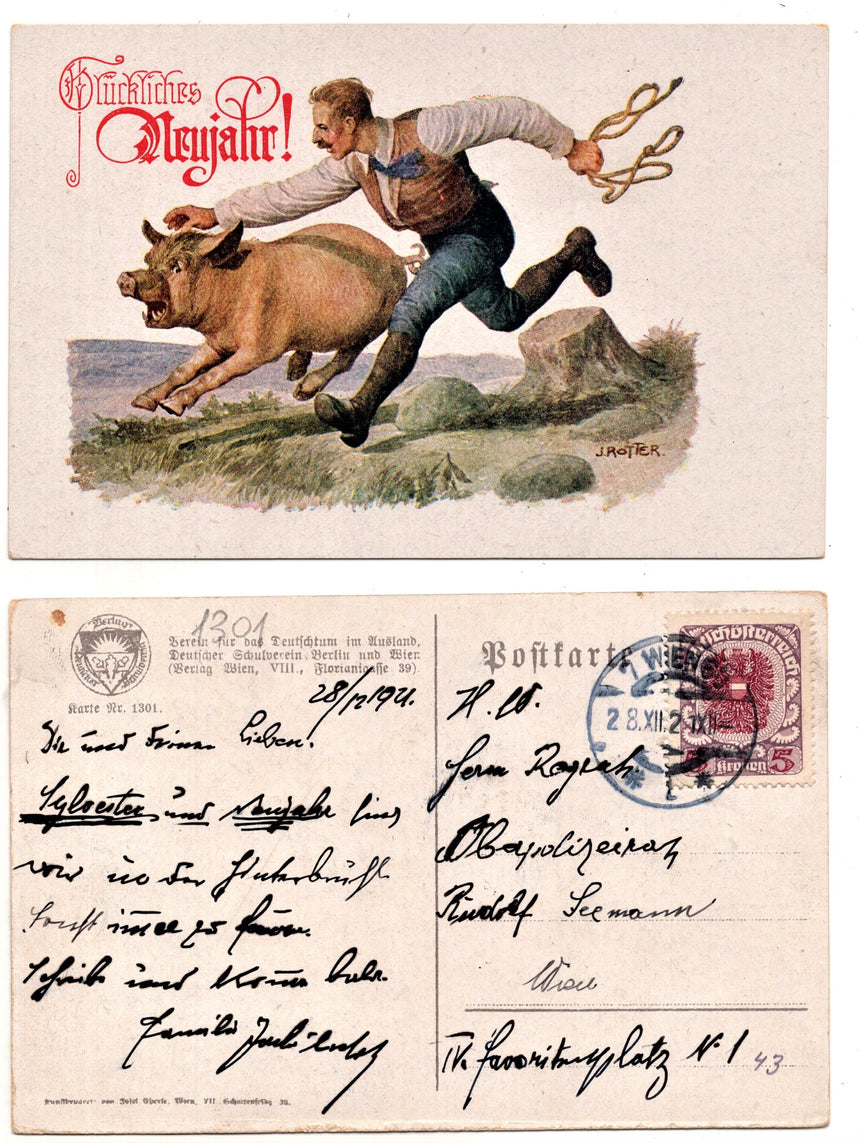 Glückliches
Neujahr!
J. ROTTER.
Verlag
Deutscher Schulverein
1301
Verein für das Deutschtum im Ausland,
Deutscher Schulverein Berlin und Wien
(Verlag Wien, VIII., Florianigasse 39).
Karte Nr. 1301.
28/12 1921.
Dir und Deinen Lieben!
Sylvester und Neujahr sind
wir in der Hinterbrühl
sonst immer zu Hause.
Schreibe und komme bald.
Familie
Kunstdruckerei von Josef Eberle, Wien, VII. Schottenfeldg. 38.
Postkarte
7 WIEN
28.XII.21
Deutschösterreich
5 Kronen 5
H. W.
Herrn
Oberpolizeirat
Rudolf Seemann
Wien
IV. Favoritenplatz N. 1
43